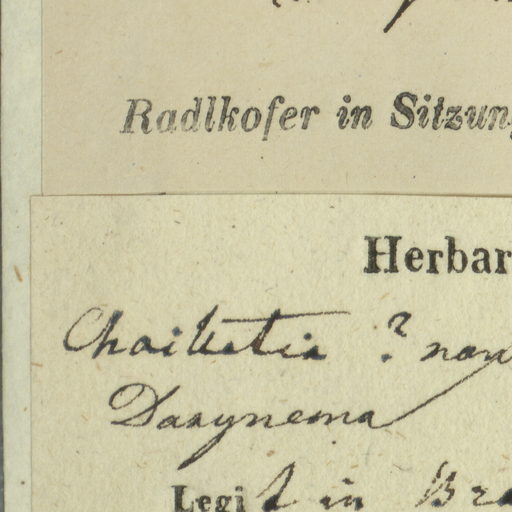 Radlkofer in Sitzung
Herbar
Chailletia ? non
Dasynema
Legit in Bra